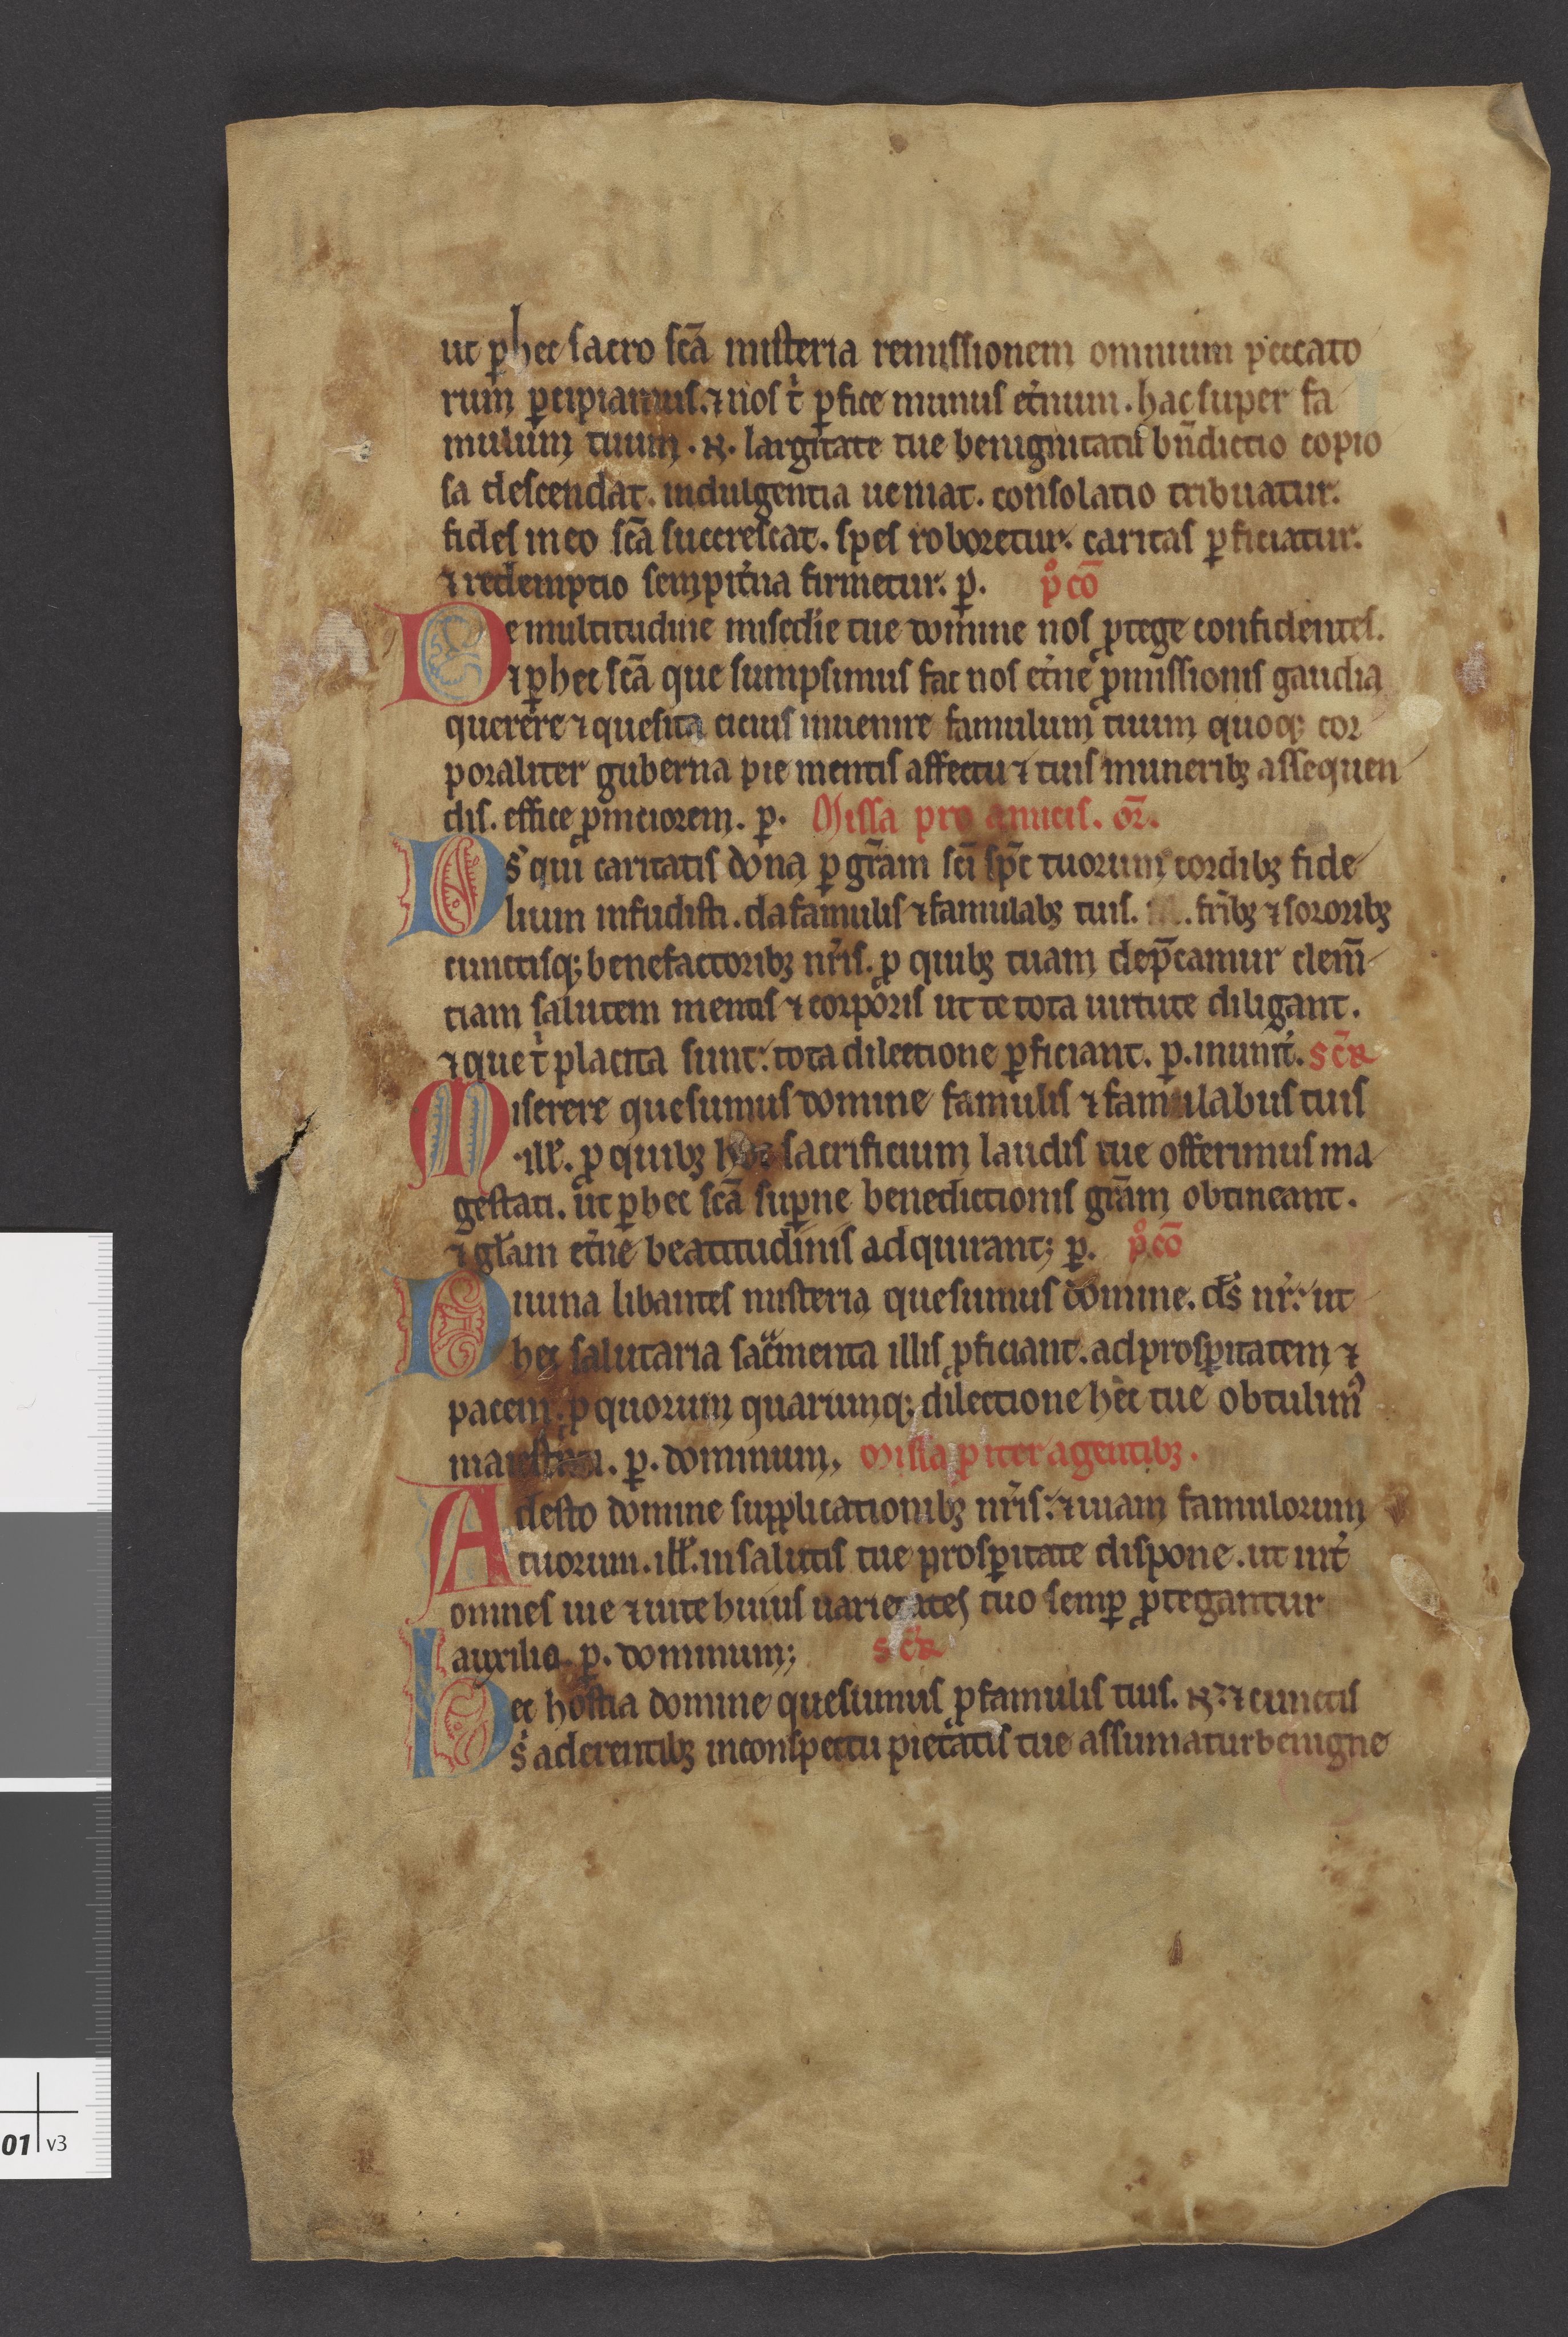 ut ꝑ hec sacro sc̄a misteria remissionem omnium peccato
rum ꝑcipiamus. ⁊ nos t̉ ꝑfice munus et̉num. hac super fa
mulum tuum. N. largitate tue benignitatis bn̄dictio copio
sa descendat. indulgentia ueniat. consolatio tribuatur.
fides in eo sc̄a succrescat. spes roboretur. caritas ꝑficiatur.
⁊ redemptio sempit̉na firmetur. ꝑ. p̊cō
De multitudine misc̄die tue domine nos ꝓtege confidentes.
⁊ ꝑ hec sc̄a que sumpsimus fac nos et̉ne ꝓmissionis gaudia
querere ⁊ quesita cicius inuenire famulum tuum quoq; cor
poraliter guberna pie mentis affectu ⁊ tuis muneribꝫ assequen
dis. effice ꝓmciorem. ꝑ. Missa pro amicis. or̄.
Ds̄ qui caritatis dona ꝑ gr̄am sc̄i sp̄c tuorum cordibꝫ fide
lium infudisti. da famulis ⁊ famulabꝫ tuis. ill. fr̄ibꝫ ⁊ sororibꝫ
cunctisq; benefactoribꝫ nr̄is. ꝓ quibꝫ tuam dep̄camur clem̄
tiam salutem mentis ⁊ corporis ut te tota uirtute diligant.
⁊ que t̉ placita sunt: tota dilectione ꝑficiant. ꝑ. in unit̉. scr̄
Miserere quesumus domine famulis ⁊ famulabus tuis
.ill̄. ꝓ quibꝫ hoc sacrificium laudis tue offerimus ma
gestati. ut ꝑ hec sc̄a sup̱ne benedictionis gr̄am obtineant.
⁊ gl̄am et̉ne beatitudinis adquirant; ꝑ. p̊cō
Diuina libantes misteria quesumus domine. ds̄ nr̄: ut
hec salutaria sac̄menta illis ꝓficiant. ad prosꝑitatem ⁊
pacem: ꝓ quorum quarumq; dilectione hec tue obtulimꝰ
maiestati. ꝑ. dominum, Missa ꝓ iter agentibꝫ.
Adesto domine supplicationibꝫ nr̄is: ⁊ uiam famulorum
tuorum. ill̄. in salutis tue prosꝑitate dispone. ut int̉
omnes uie ⁊ uite huius uarietates tuo semꝑ ꝓtegantur
auxilio. ꝑ. dominum; scr̄
Hec hostia domine quesumus ꝓ famulis tuis. N. ⁊ cunctis
s̉ aderentibꝫ in conspectu pietatis tue assumatur benigne